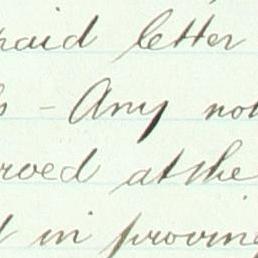 paid letter
- Any not
rved at the
in proving